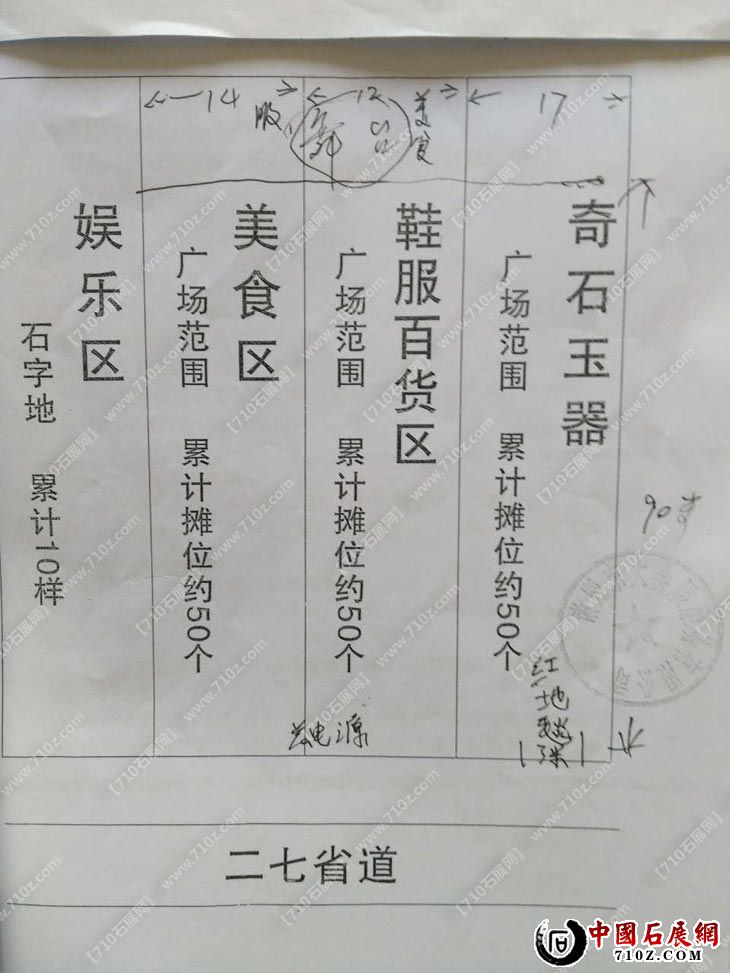 14
12
17
服
舞台
美食
娱乐区
石字地 累计10样
美食区
广场范围 累计摊位约50个
鞋服百货区
广场范围 累计摊位约50个
奇石玉器
广场范围 累计摊位约50个
90
电源
红地毯
二七省道
【710石展网】www.710z.com
中國石展網
710Z.COM